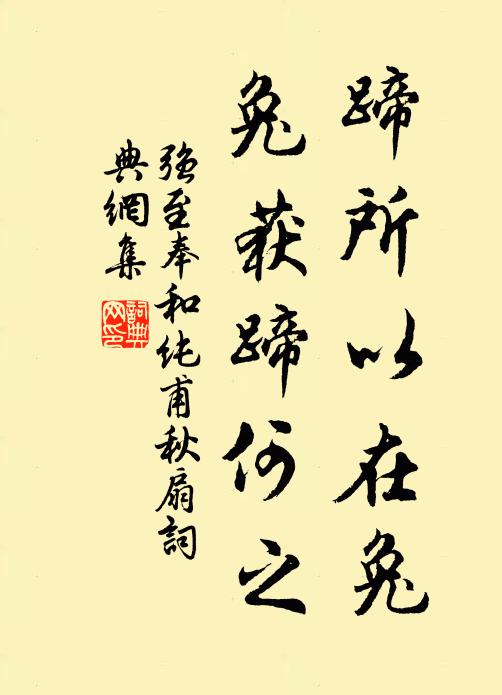 蹄所以在兔
兔获蹄何之
强至奉和纯甫秋扇詞
典網集
詞典網印